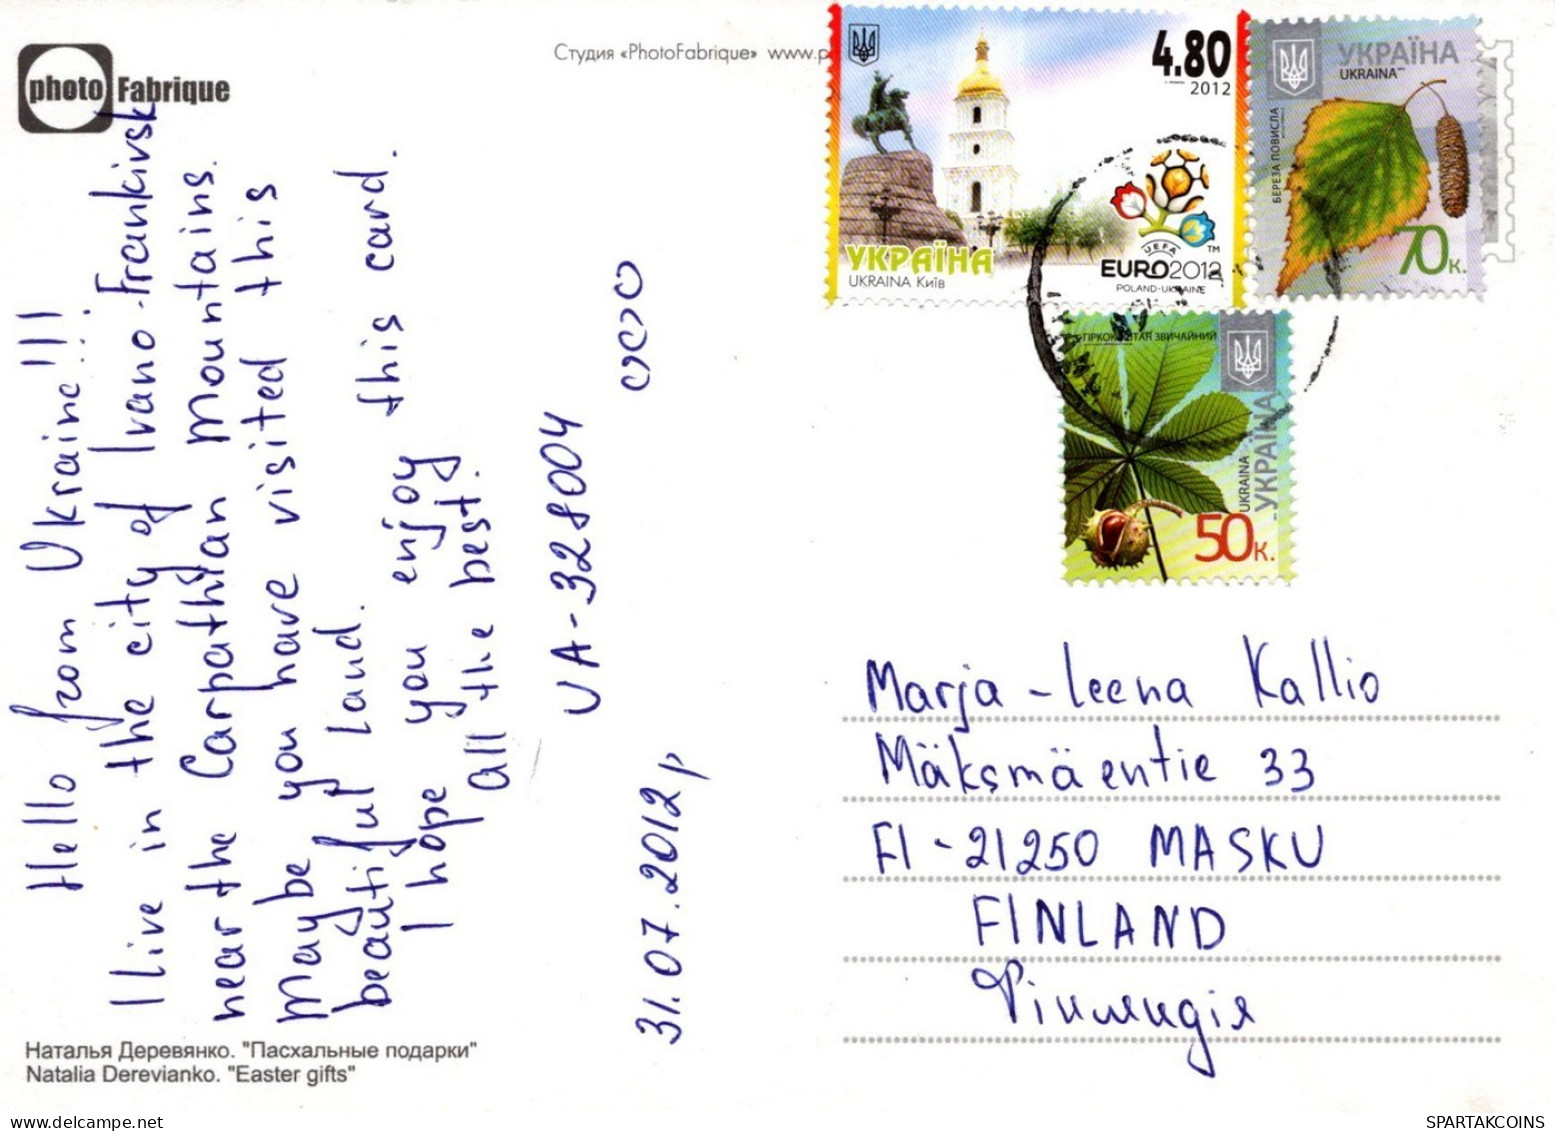 photo Fabrique
Студия «PhotoFabrique» www.p
4.80
2012
УКРАЇНА
UKRAINA Київ
UEFA
EURO2012
POLAND-UKRAINE
TM
УКРАЇНА
UKRAINA
БЕРЕЗА ПОВИСЛА
70к.
ЗВИЧАЙНИЙ
УКРАЇНА
UKRAINA
50к.
Hello from Ukraine!!!
I live in the city of Ivano-Frankivsk
near the Carpathian Mountains.
Maybe you have visited this
beautiful land.
I hope you enjoy this card.
all the best.
UA-328004
31.07.2012р
Marja-leena Kallio
Mäksmäentie 33
FI-21250 MASKU
FINLAND
Фінляндія
Наталья Деревянко. "Пасхальные подарки"
Natalia Derevianko. "Easter gifts"
SPARTAKCOINS